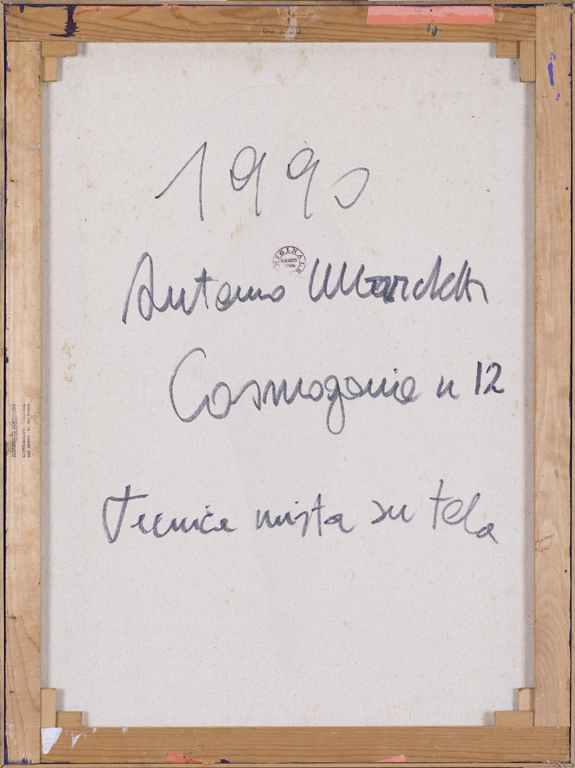 1990
ORIGINALE
Antonio Marchetti
Cosmogonie n 12
Tecnica mista su tela